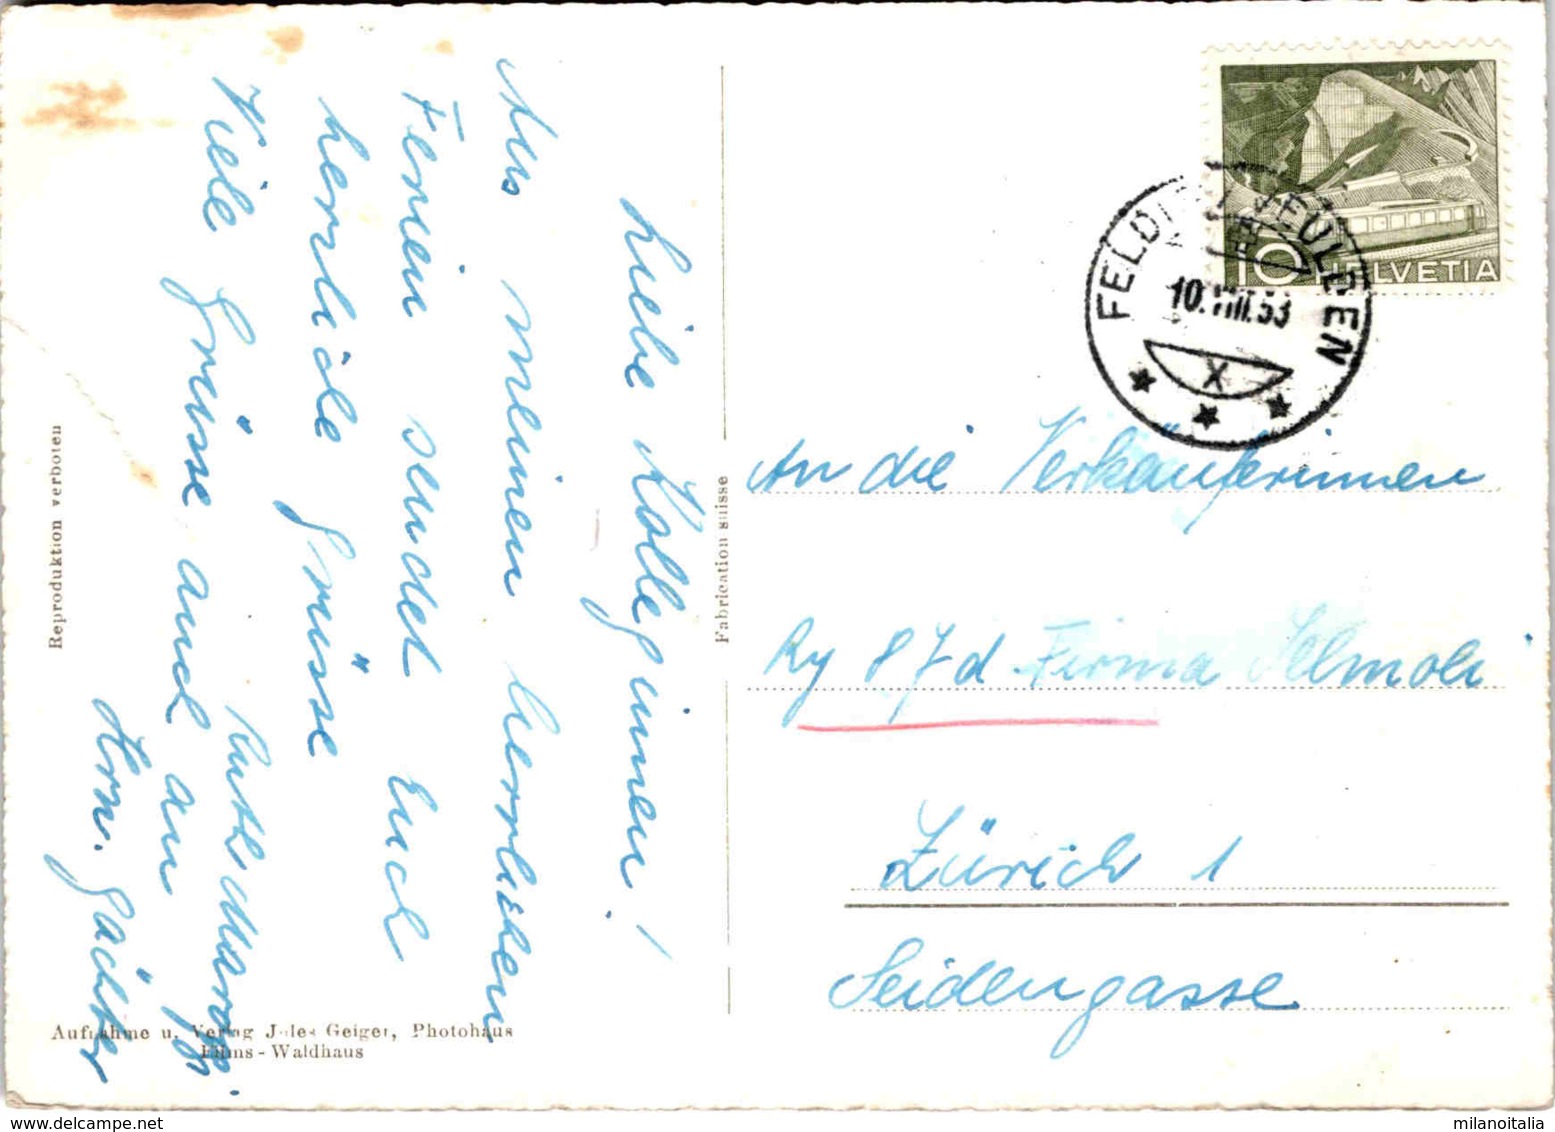 Liebe Kolleginnen!
Aus meinen herrlichen
Ferien sendet Euch
herzliche Grüsse
Ruth
Viele Grüsse auch an
Hrn. Gächter
Reproduktion verboten
Fabrication suisse
Aufnahme u. Verlag Jules Geiger, Photohaus
Flims - Waldhaus
10 HELVETIA
10.VIII.53
X
An die Verkäuferinnen
Ry 87d Firma Jelmoli
Zürich 1
Seidengasse
milanoitalia